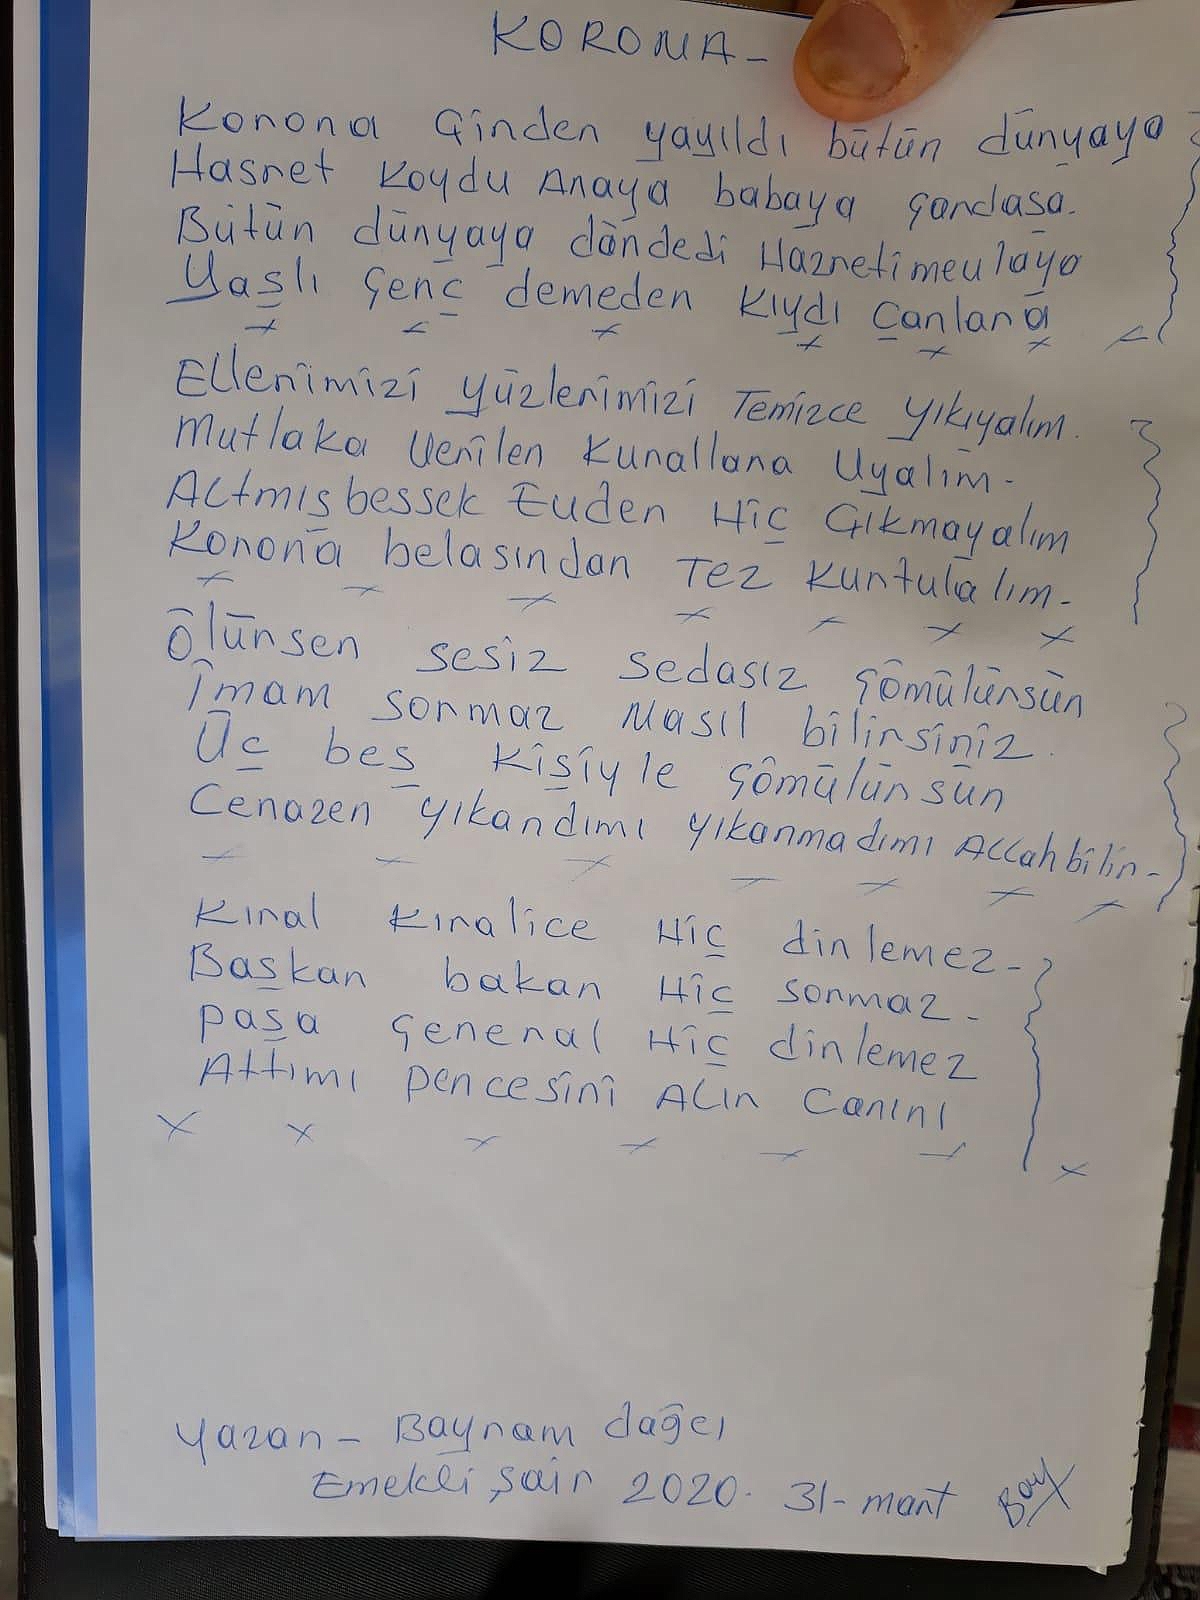 KORONA-
Korona Çinden yayıldı bütün dünyaya
Hasret Koydu Anaya babaya gardaşa.
Bütün dünyaya dôndedi Hazretimevlaya
Yaşlı genç demeden Kıydı Canlara
Ellerimizi yüzlerimizi Temizce yıkıyalım.
Mutlaka Verilen Kurallara Uyalım-
Altmışbessek Evden Hiç Çıkmayalım
Korona belasından Tez Kurtulalım-
Ölürsen sesiz sedasız gömülürsün
İmam sormaz Nasıl bilirsiniz.
Üç beş Kişiyle gömülürsün
Cenazen yıkandımı yıkanmadımı Allahbilir-
Kıral Kıralice Hiç dinlemez-
Başkan bakan Hiç sormaz-
paşa general Hiç dinlemez
Attımı pencesini Alır Canını
Yazan- Bayram dağcı
Emekli şair 2020- 31-mart Bay